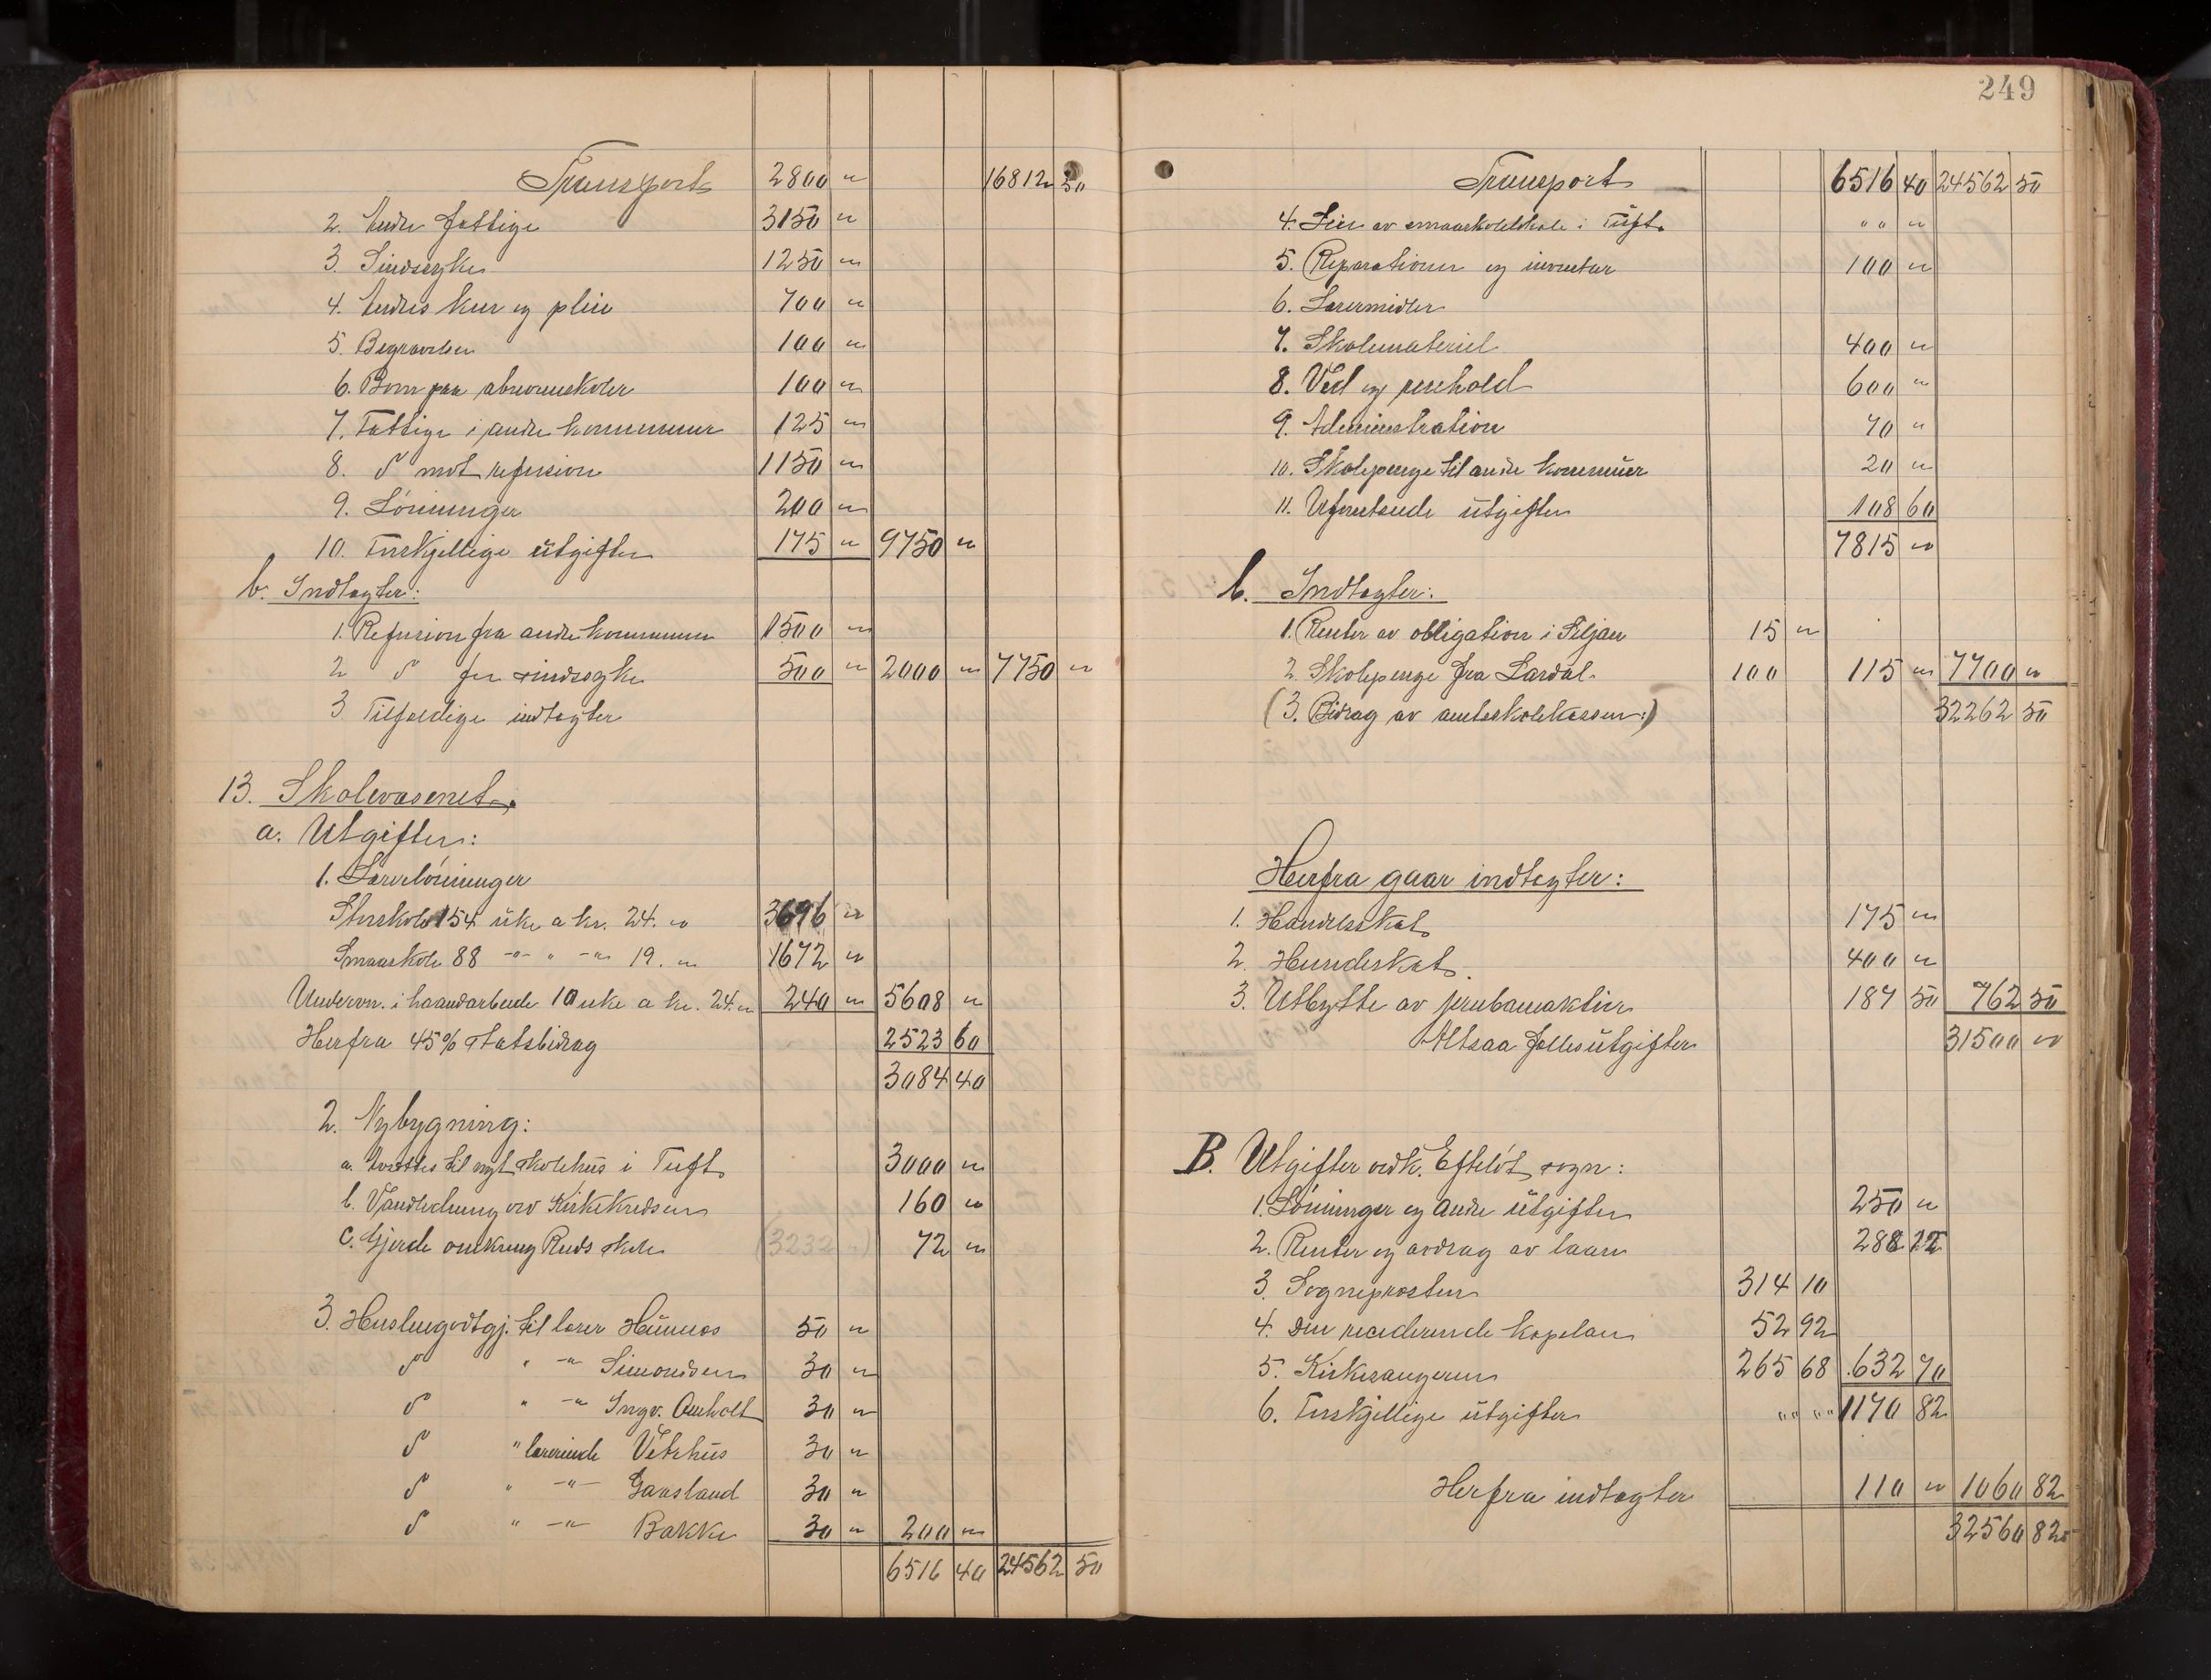 Transport 2800 " 16812 50
2. Andre fattige 3150 "
3. Sindssyke 1250 "
4. Andres kur og pleie 700 "
5. Begravelser 100 "
6. Born paa abnormskoler 100 "
7. Fattige i andre kommuner 125 "
8. do mot refusion 1150 "
9. Lönninger 200 "
10. Forskjellige utgifter 175 " 9750 "
b. Indtægter:
1. Refusion fra andre kommuner 1500 "
2 do for sindssyke 500 " 2000 " 7750 "
3 Tilfældige indtægter
13. Skolevæsenet.
a. Utgifter:
1. Lærerlönninger
Storskole 154 uke a kr. 24. " 3696 "
Smaaskole 88 -"- " -"- 19. " 1672 "
Undervn. i haandarbeide 10 uke a kr. 24. " 240 " 5608 "
Herfra 45% statsbidrag 2523 60
3084 40
2. Nybygning:
a. Avsættes til nyt skolehus i Tuft 3000 "
b. Vandledning ved Kirkekredsen 160 "
c. Gjerde omkring Ruds skole (3232 ") 72 "
3. Husleiegodtgj. til lærer Humos 50 "
do " -"- Simonsen 30 "
do " -"- Ingv. Omholt 30 "
do " lærerinde Vetrhus 30 "
do " -"- Gaasland 30 "
do " -"- Bakke 30 " 200 "
6516 40 24562 50
249
Transport 6516 40 24562 50
4. Leie av smaaskolelokale i Tuft. " " "
5. Reparationer og inventar 100 "
6. Lærermidler
7. Skolemateriel 400 "
8. Ved og renhold 600 "
9. Administration 70 "
10. Skolepenge til andre kommuner 20 "
11. Uforutseede utgifter 108 60
7815 "
b. Indtægter:
1. Renter av obligation i Siljan 15 "
2. Skolepenge fra Lardal 100 115 " 7700 "
(3. Bidrag av amtsskolekassen:) 32262 50
Herfra gaar indtægter:
1. Handelsskat 175 "
2. Hundeskat. 400 "
3. Utbytte av jernbaneaktier 187 50 762 50
Altsaa fællesutgifter 31500 "
B. Utgifter vedk. Efteløt sogn:
1. Lönninger og andre utgifter 250 "
2. Renter og avdrag av laan 288 12
3. Sogneprosten 314 10
4. Den residerende kapelan 52 92
5. Kirkesangeren 265 68 632 70
6. Forskjellige utgifter " " " " 1170 82
Herfra indtægter 110 " 1060 82
32560 82